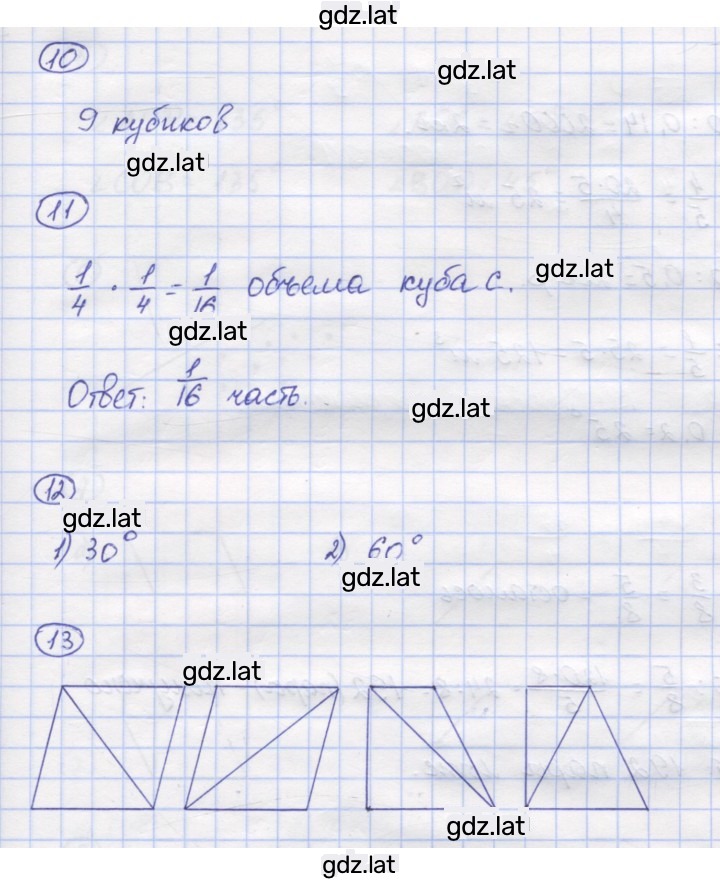 gdz.lat
10
gdz.lat
9 кубиков
gdz.lat
11
1/4 · 1/4 = 1/16 объема куба с.
gdz.lat
gdz.lat
Ответ: 1/16 часть.
gdz.lat
12
gdz.lat
1) 30° 2) 60°
gdz.lat
13
gdz.lat
gdz.lat
gdz.lat